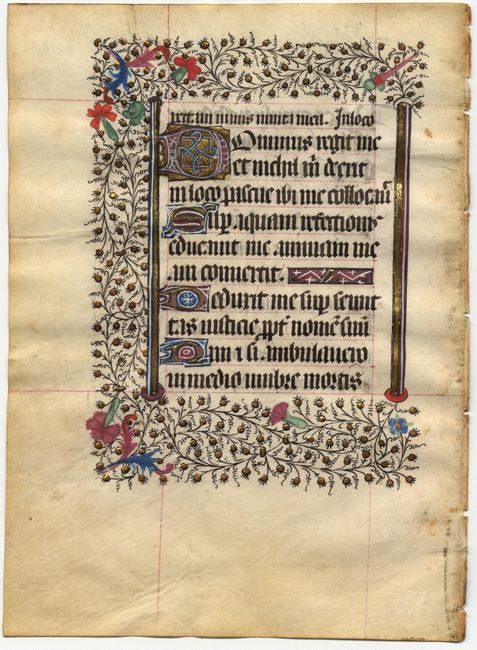 Inloco
Dominus regit me
et nichil m̄ deerit
in loco pascue ibi me collocauͥ
Sup̄ aquam refectionis
educauit me animam me
am conuertit.
Deduxit me sup̄ semit
tas iusticie ppt̄ nomē suū
Nam ⁊ si ambulauero
in medio umbre mortis